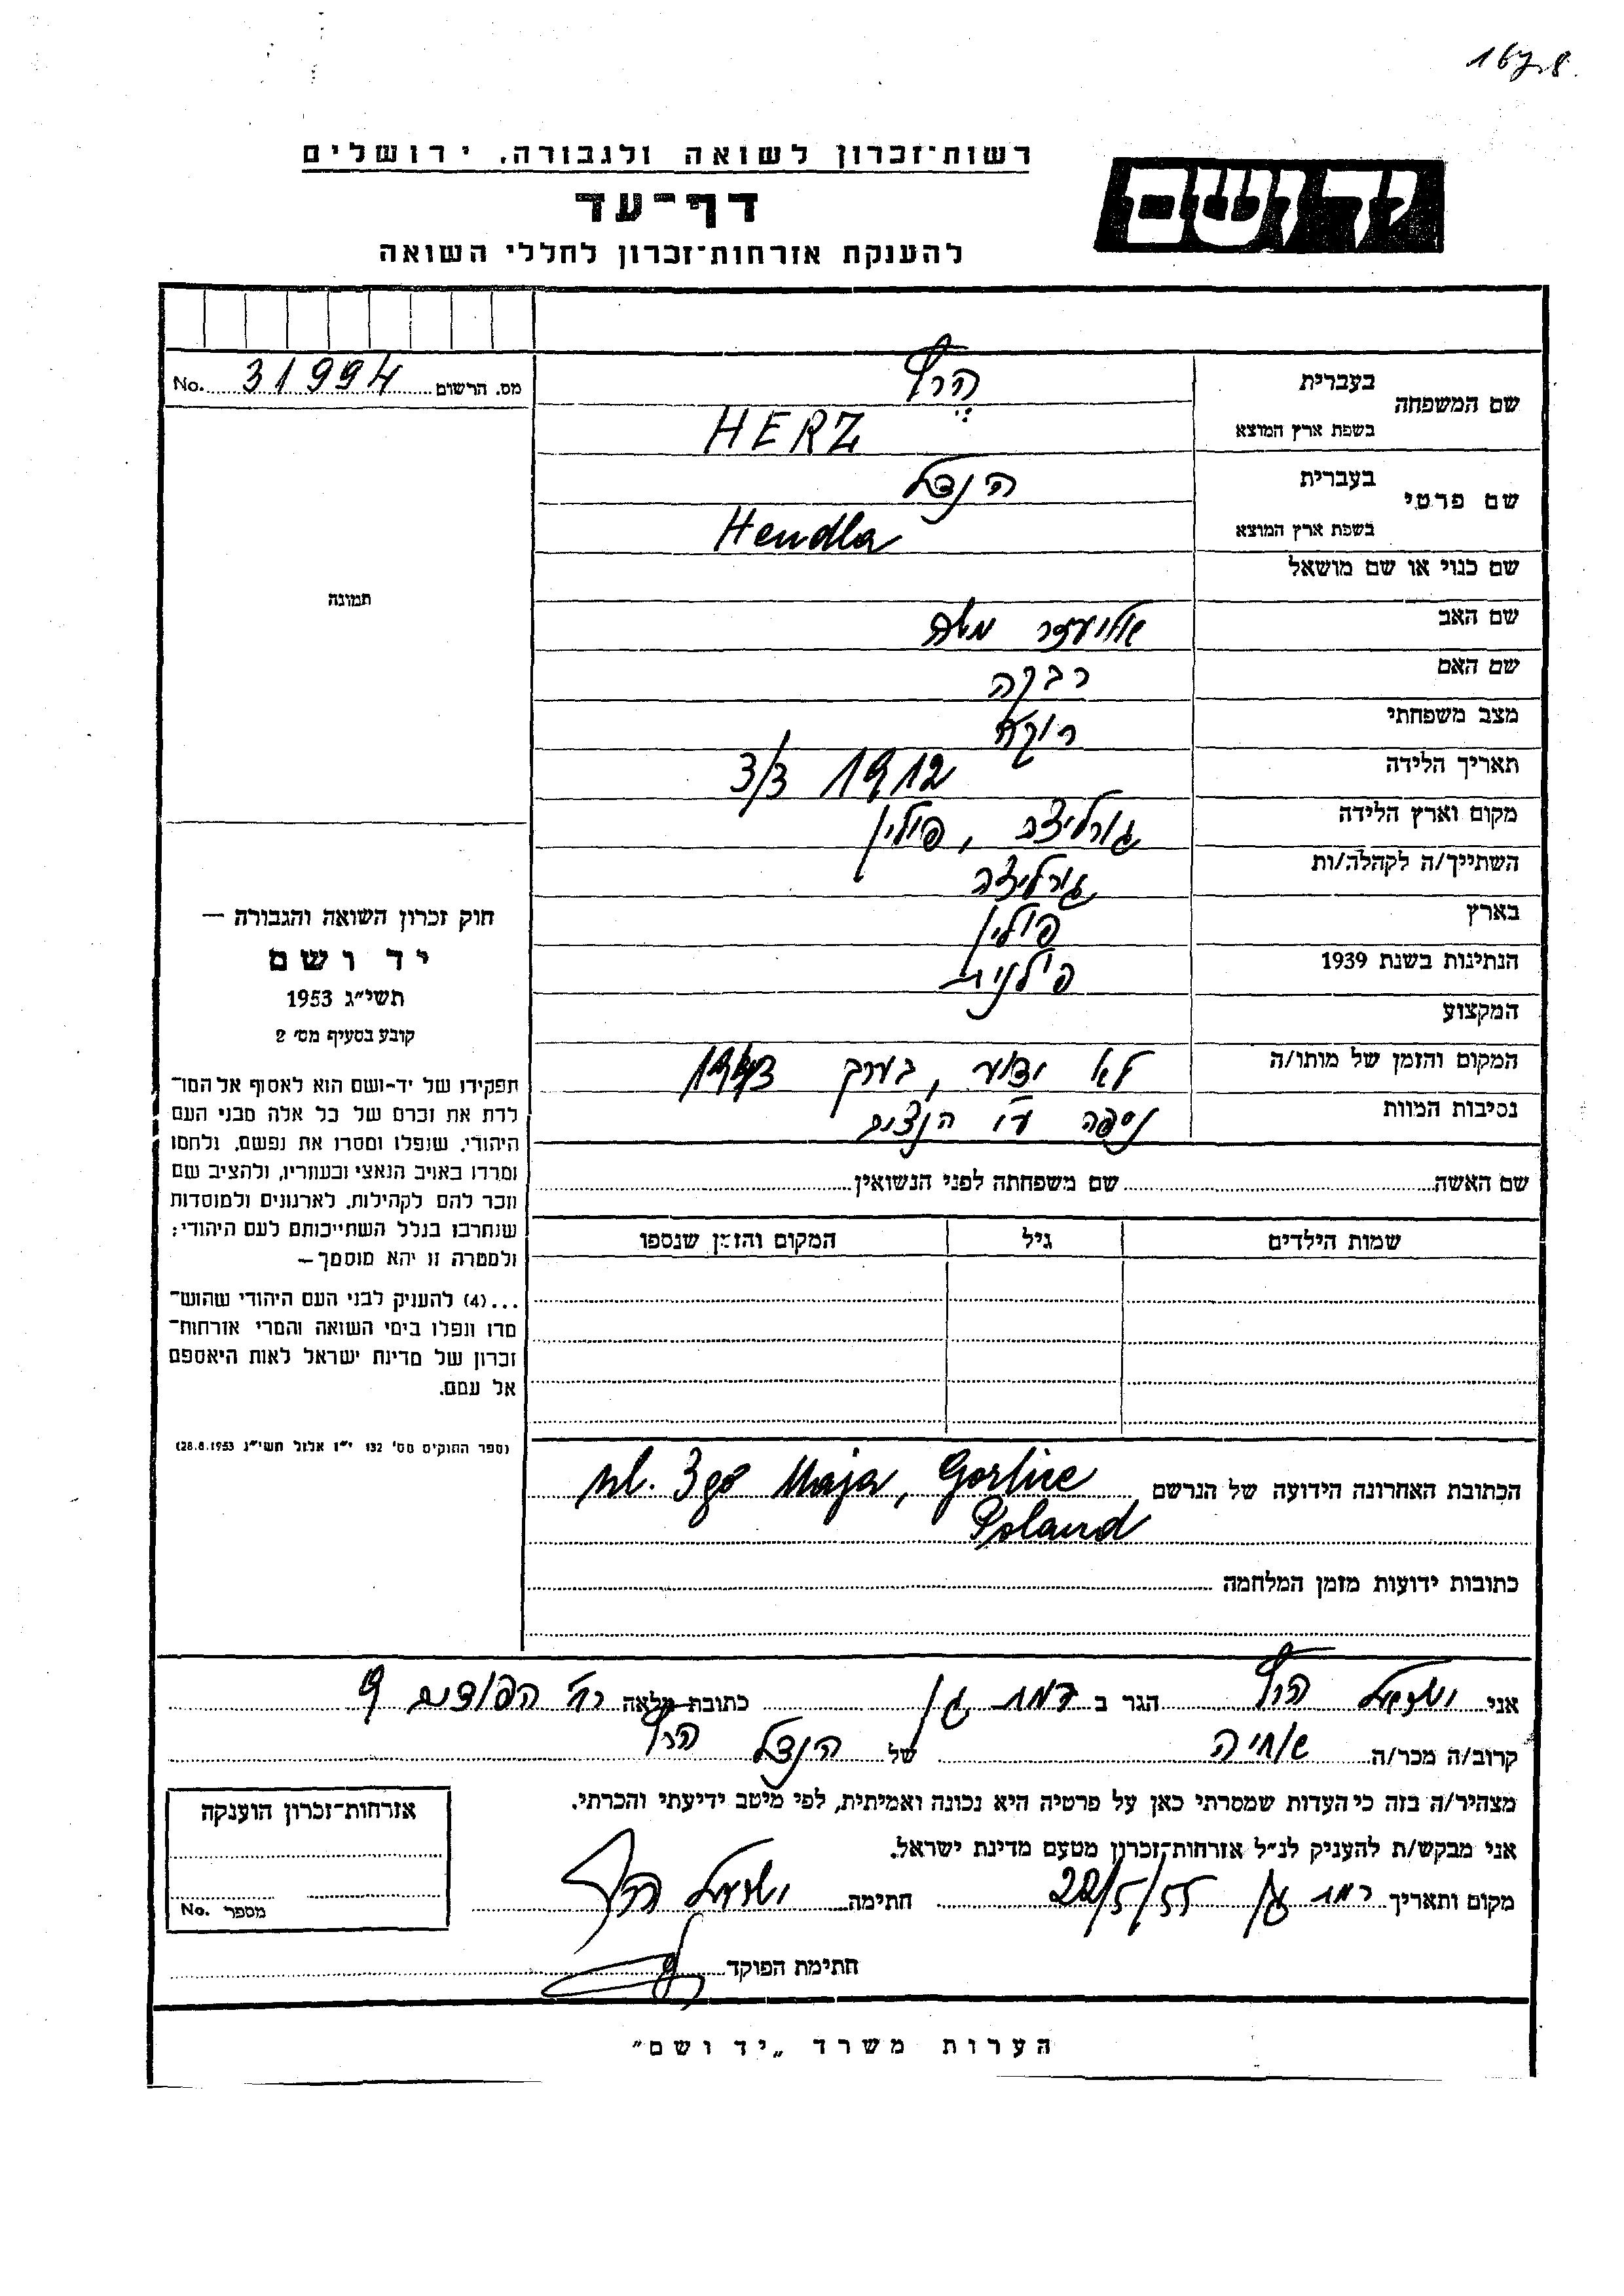 167.8
רשות־זכרון לשואה ולגבורה, ירושלים
יד ושם
דף־עד
להענקת אזרחות־זכרון לחללי השואה
No. 31994 מס. הרשום
שם המשפחה
בעברית הרץ
בשפת ארץ המוצא HERZ
שם פרטי
בעברית הנדל
בשפת ארץ המוצא Hendla
שם כנוי או שם מושאל
שם האב אליעזר משה
שם האם רבקה
מצב משפחתי רוקא
תאריך הלידה 3/3 1912
מקום וארץ הלידה גורליצה, פולין
השתייך/ה לקהלה/ות גורליצה
בארץ פולין
הנתינות בשנת 1939 פולנית
המקצוע
המקום והזמן של מותו/ה לא ידוע, בערך 1943
נסיבות המוות נספה ע"י הנצים
תמונה
חוק זכרון השואה והגבורה —
יד ושם
תשי״ג 1953
קובע בסעיף מס׳ 2
תפקידו של יד-ושם הוא לאסוף אל המו־
לדת את זכרם של כל אלה מבני העם
היהודי, שנפלו ומסרו את נפשם, נלחמו
ומרדו באויב הנאצי ובעוזריו, ולהציב שם
וזכר להם לקהילות, לארגונים ולמוסדות
שנחרבו בגלל השתייכותם לעם היהודי;
ולמטרה זו יהא מוסמך —
...(4) להעניק לבני העם היהודי שהוש־
מדו ונפלו בימי השואה והמרי אזרחות־
זכרון של מדינת ישראל לאות היאספם
אל עמם.
(ספר החוקים מס׳ 132 י״ז אלול תשי״ג 28.8.1953)
שם האשה שם משפחתה לפני הנשואין
שמות הילדים גיל המקום והזמן שנספו
הכתובת האחרונה הידועה של הנרשם ul. 3go Maja, Gorlice
Poland
כתובות ידועות מזמן המלחמה
אני הרץ הגר ב רמת גן כתובת מלאה רח׳ הפודים 9
קרוב/ה מכר/ה אחיה של הנדל הרץ
מצהיר/ה בזה כי העדות שמסרתי כאן על פרטיה היא נכונה ואמיתית, לפי מיטב ידיעתי והכרתי.
אני מבקש/ת להעניק לנ״ל אזרחות־זכרון מטעם מדינת ישראל.
מקום ותאריך רמת גן 22/5/55 חתימה הרץ
חתימת הפוקד
אזרחות־זכרון הוענקה
No. מספר
הערות משרד „יד ושם״